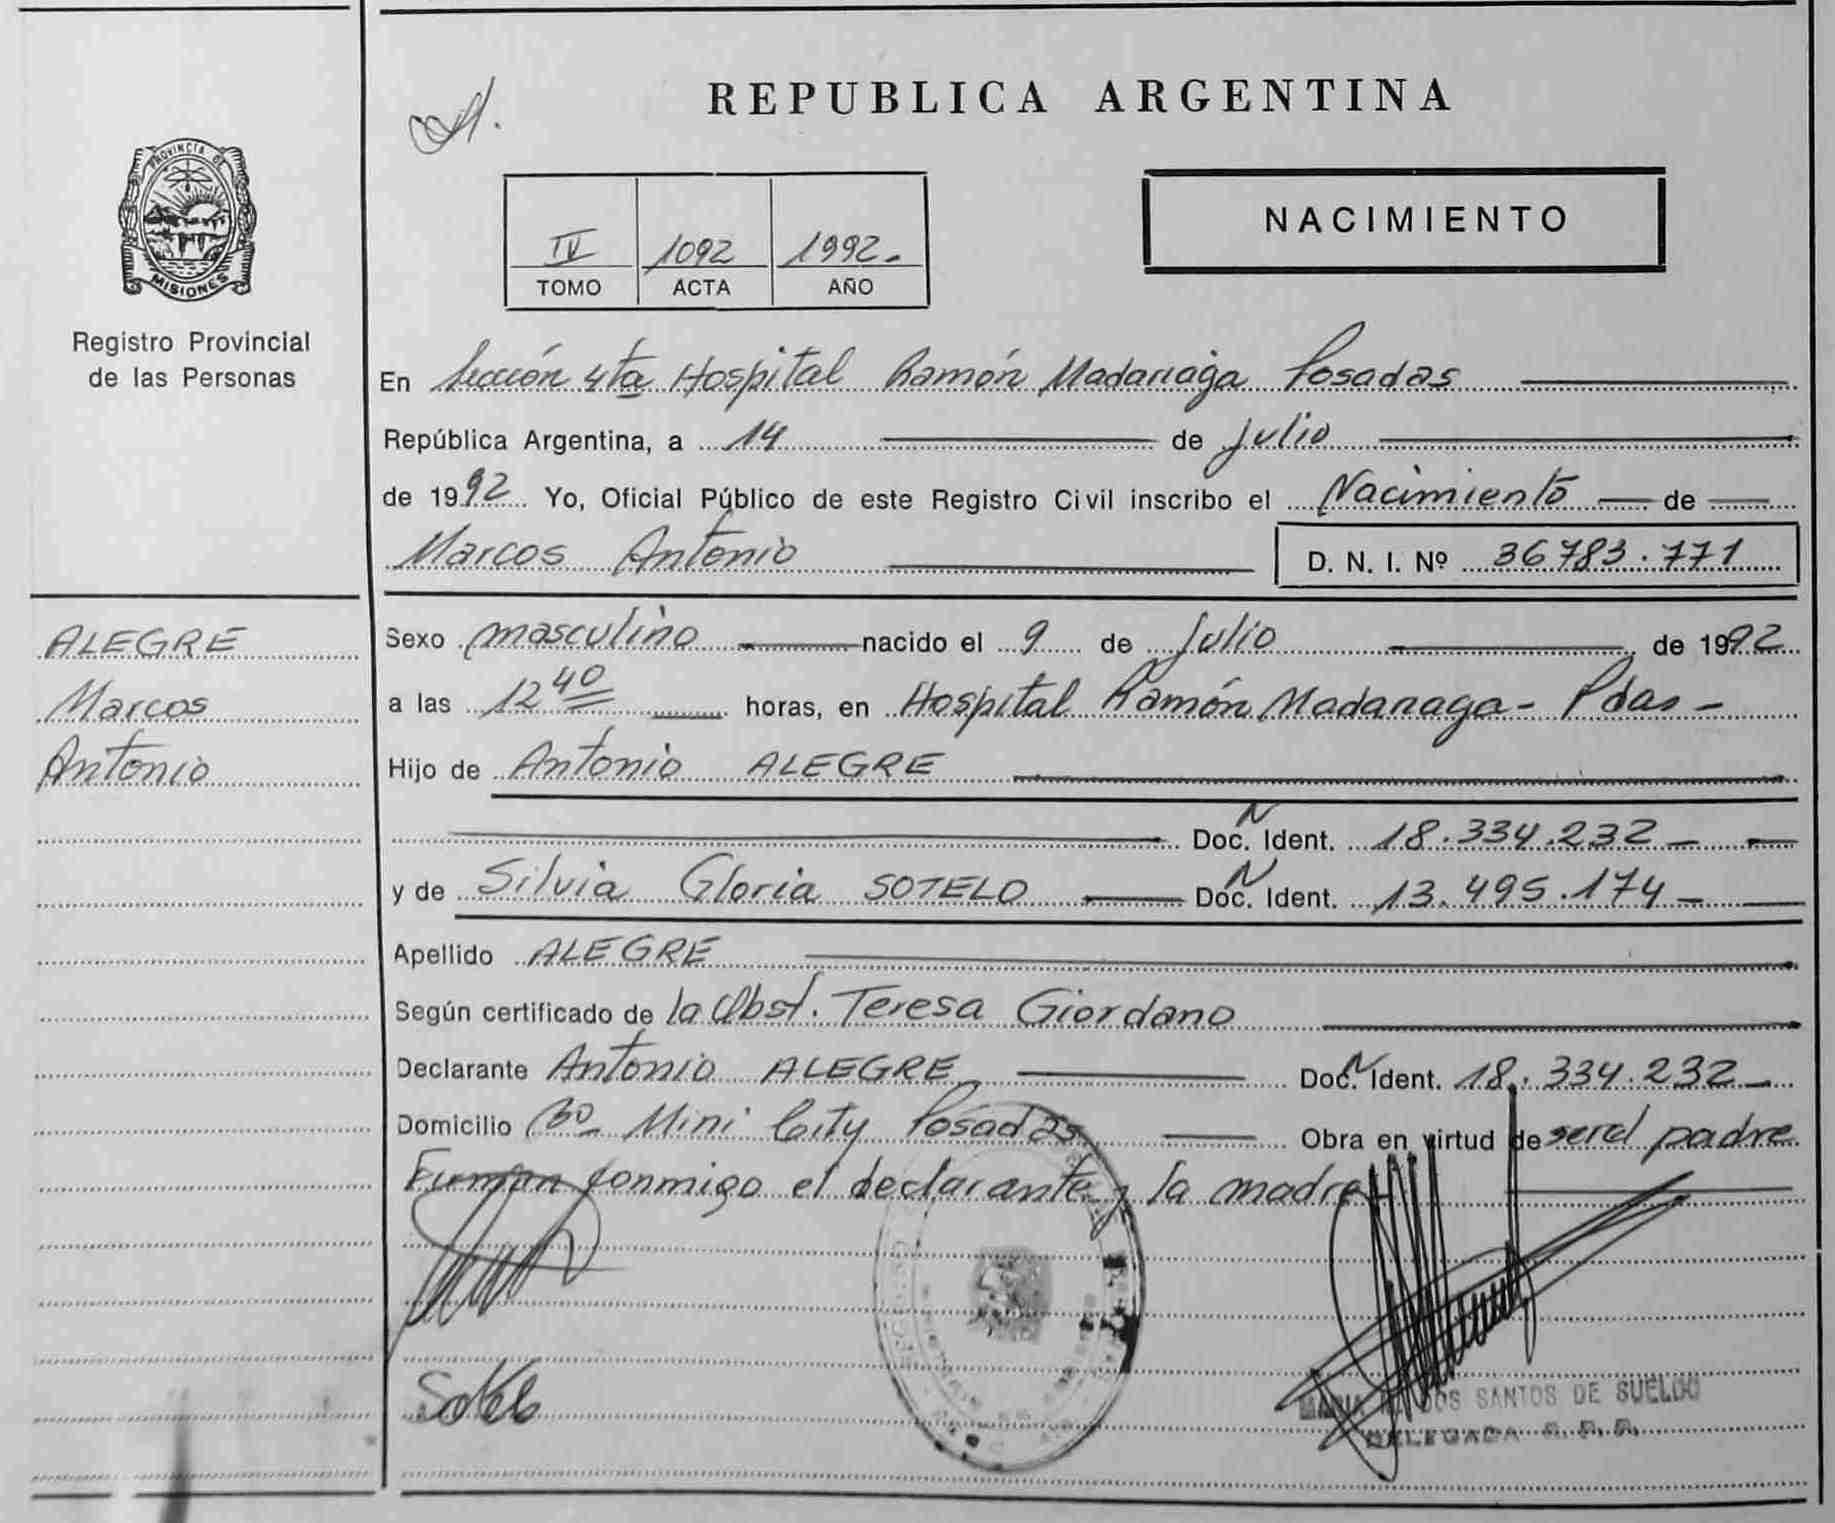 REPUBLICA ARGENTINA
PROVINCIA DE
MISIONES
Registro Provincial
de las Personas
IV 1092 1992.
TOMO ACTA AÑO
NACIMIENTO
En Sección 4ta Hospital Ramón Madariaga Posadas
República Argentina, a 14 de julio
de 1992 Yo, Oficial Público de este Registro Civil inscribo el Nacimiento de
Marcos Antonio
D. N. I. Nº 36783.771
ALEGRE
Marcos
Antonio
Sexo masculino nacido el 9 de Julio de 1992
a las 12 40 horas, en Hospital Ramón Madariaga - Pdas -
Hijo de Antonio ALEGRE
Doc. N Ident. 18.334.232 -
y de Silvia Gloria SOTELO Doc. N Ident. 13.495.174 -
Apellido ALEGRE
Según certificado de la Obst. Teresa Giordano
Declarante Antonio ALEGRE Doc. N Ident. 18.334.232 -
Domicilio Bo Mini City Posadas Obra en virtud de ser el padre
Firman conmigo el declarante y la madre
Sotelo
DOS SANTOS DE SUELDO
DELEGADA